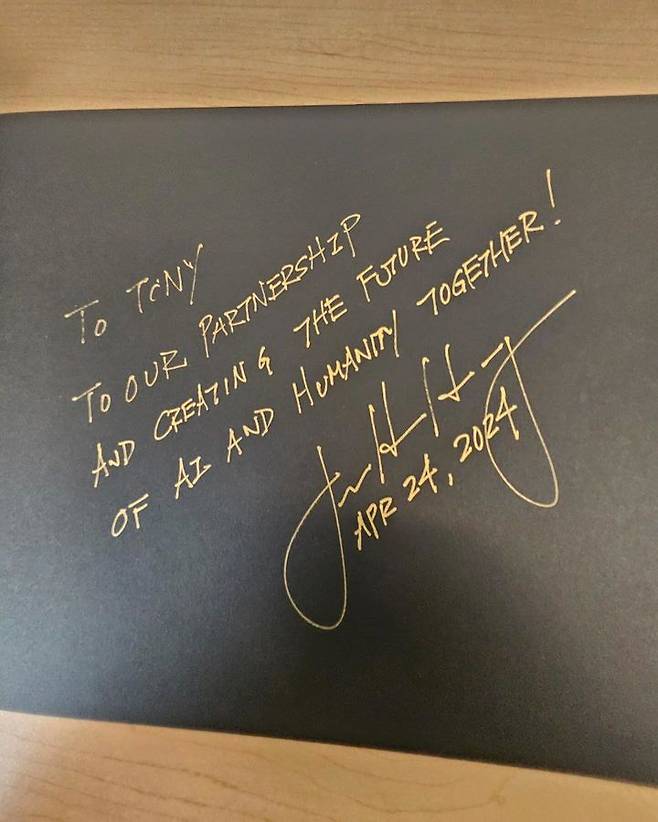 To TONY
TO OUR PARTNERSHIP
AND CREATING THE FUTURE
OF AI AND HUMANITY TOGETHER!
APR 24, 2024